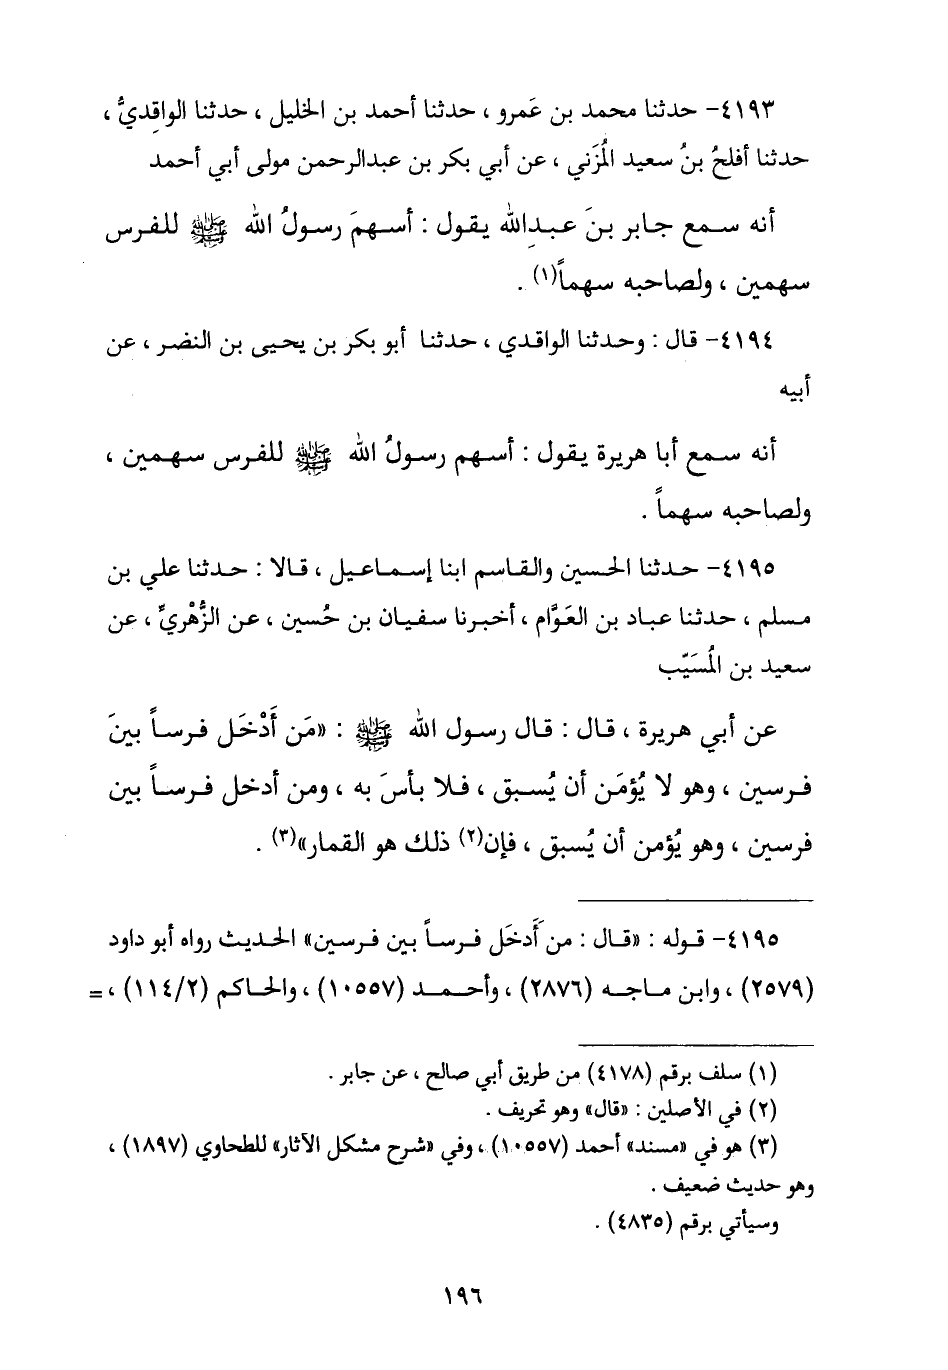 ٤١٩٣- حدثنا محمد بن عَمرو ، حدثنا أحمد بن الخليل ، حدثنا الواقِديُّ ،
حدثنا أفلحُ بنُ سعيد المُزَني ، عن أبي بكر بن عبدالرحمن مولى أبي أحمد
أنه سمع جابر بنَ عبدِالله يقول : أسهمَ رسولُ الله ﷺ للفرس
سهمين ، ولصاحبه سهماً(١) .
٤١٩٤- قال : وحدثنا الواقدي ، حدثنا أبو بكر بن يحيى بن النضر ، عن
أبيه
أنه سمع أبا هريرة يقول : أسهم رسولُ الله ﷺ للفرس سهمين ،
ولصاحبه سهماً .
٤١٩٥- حدثنا الحسين والقاسم ابنا إسماعيل ، قالا : حدثنا علي بن
مسلم ، حدثنا عباد بن العَوَّام ، أخبرنا سفيان بن حُسين ، عن الزُّهْريِّ ، عن
سعيد بن المُسَيّب
عن أبي هريرة ، قال : قال رسول الله ﷺ : «مَن أَدْخَل فرساً بينَ
فرسين ، وهو لا يُؤمَن أن يُسبق ، فلا بأسَ به ، ومن أدخل فرساً بين
فرسين ، وهو يُؤمن أن يُسبق ، فإن(٢) ذلك هو القمار»(٣) .
٤١٩٥- قوله : «قال : من أَدخَل فرساً بين فرسين» الحديث رواه أبو داود
(٢٥٧٩) ، وابن ماجه (٢٨٧٦) ، وأحمد (١٠٥٥٧) ، والحاكم (١١٤/٢) ، =
(١) سلف برقم (٤١٧٨) من طريق أبي صالح ، عن جابر .
(٢) في الأصلين : «قال» وهو تحريف .
(٣) هو في «مسند» أحمد (١٠٥٥٧) ، وفي «شرح مشكل الآثار» للطحاوي (١٨٩٧) ،
وهو حديث ضعيف .
وسيأتي برقم (٤٨٣٥) .
١٩٦